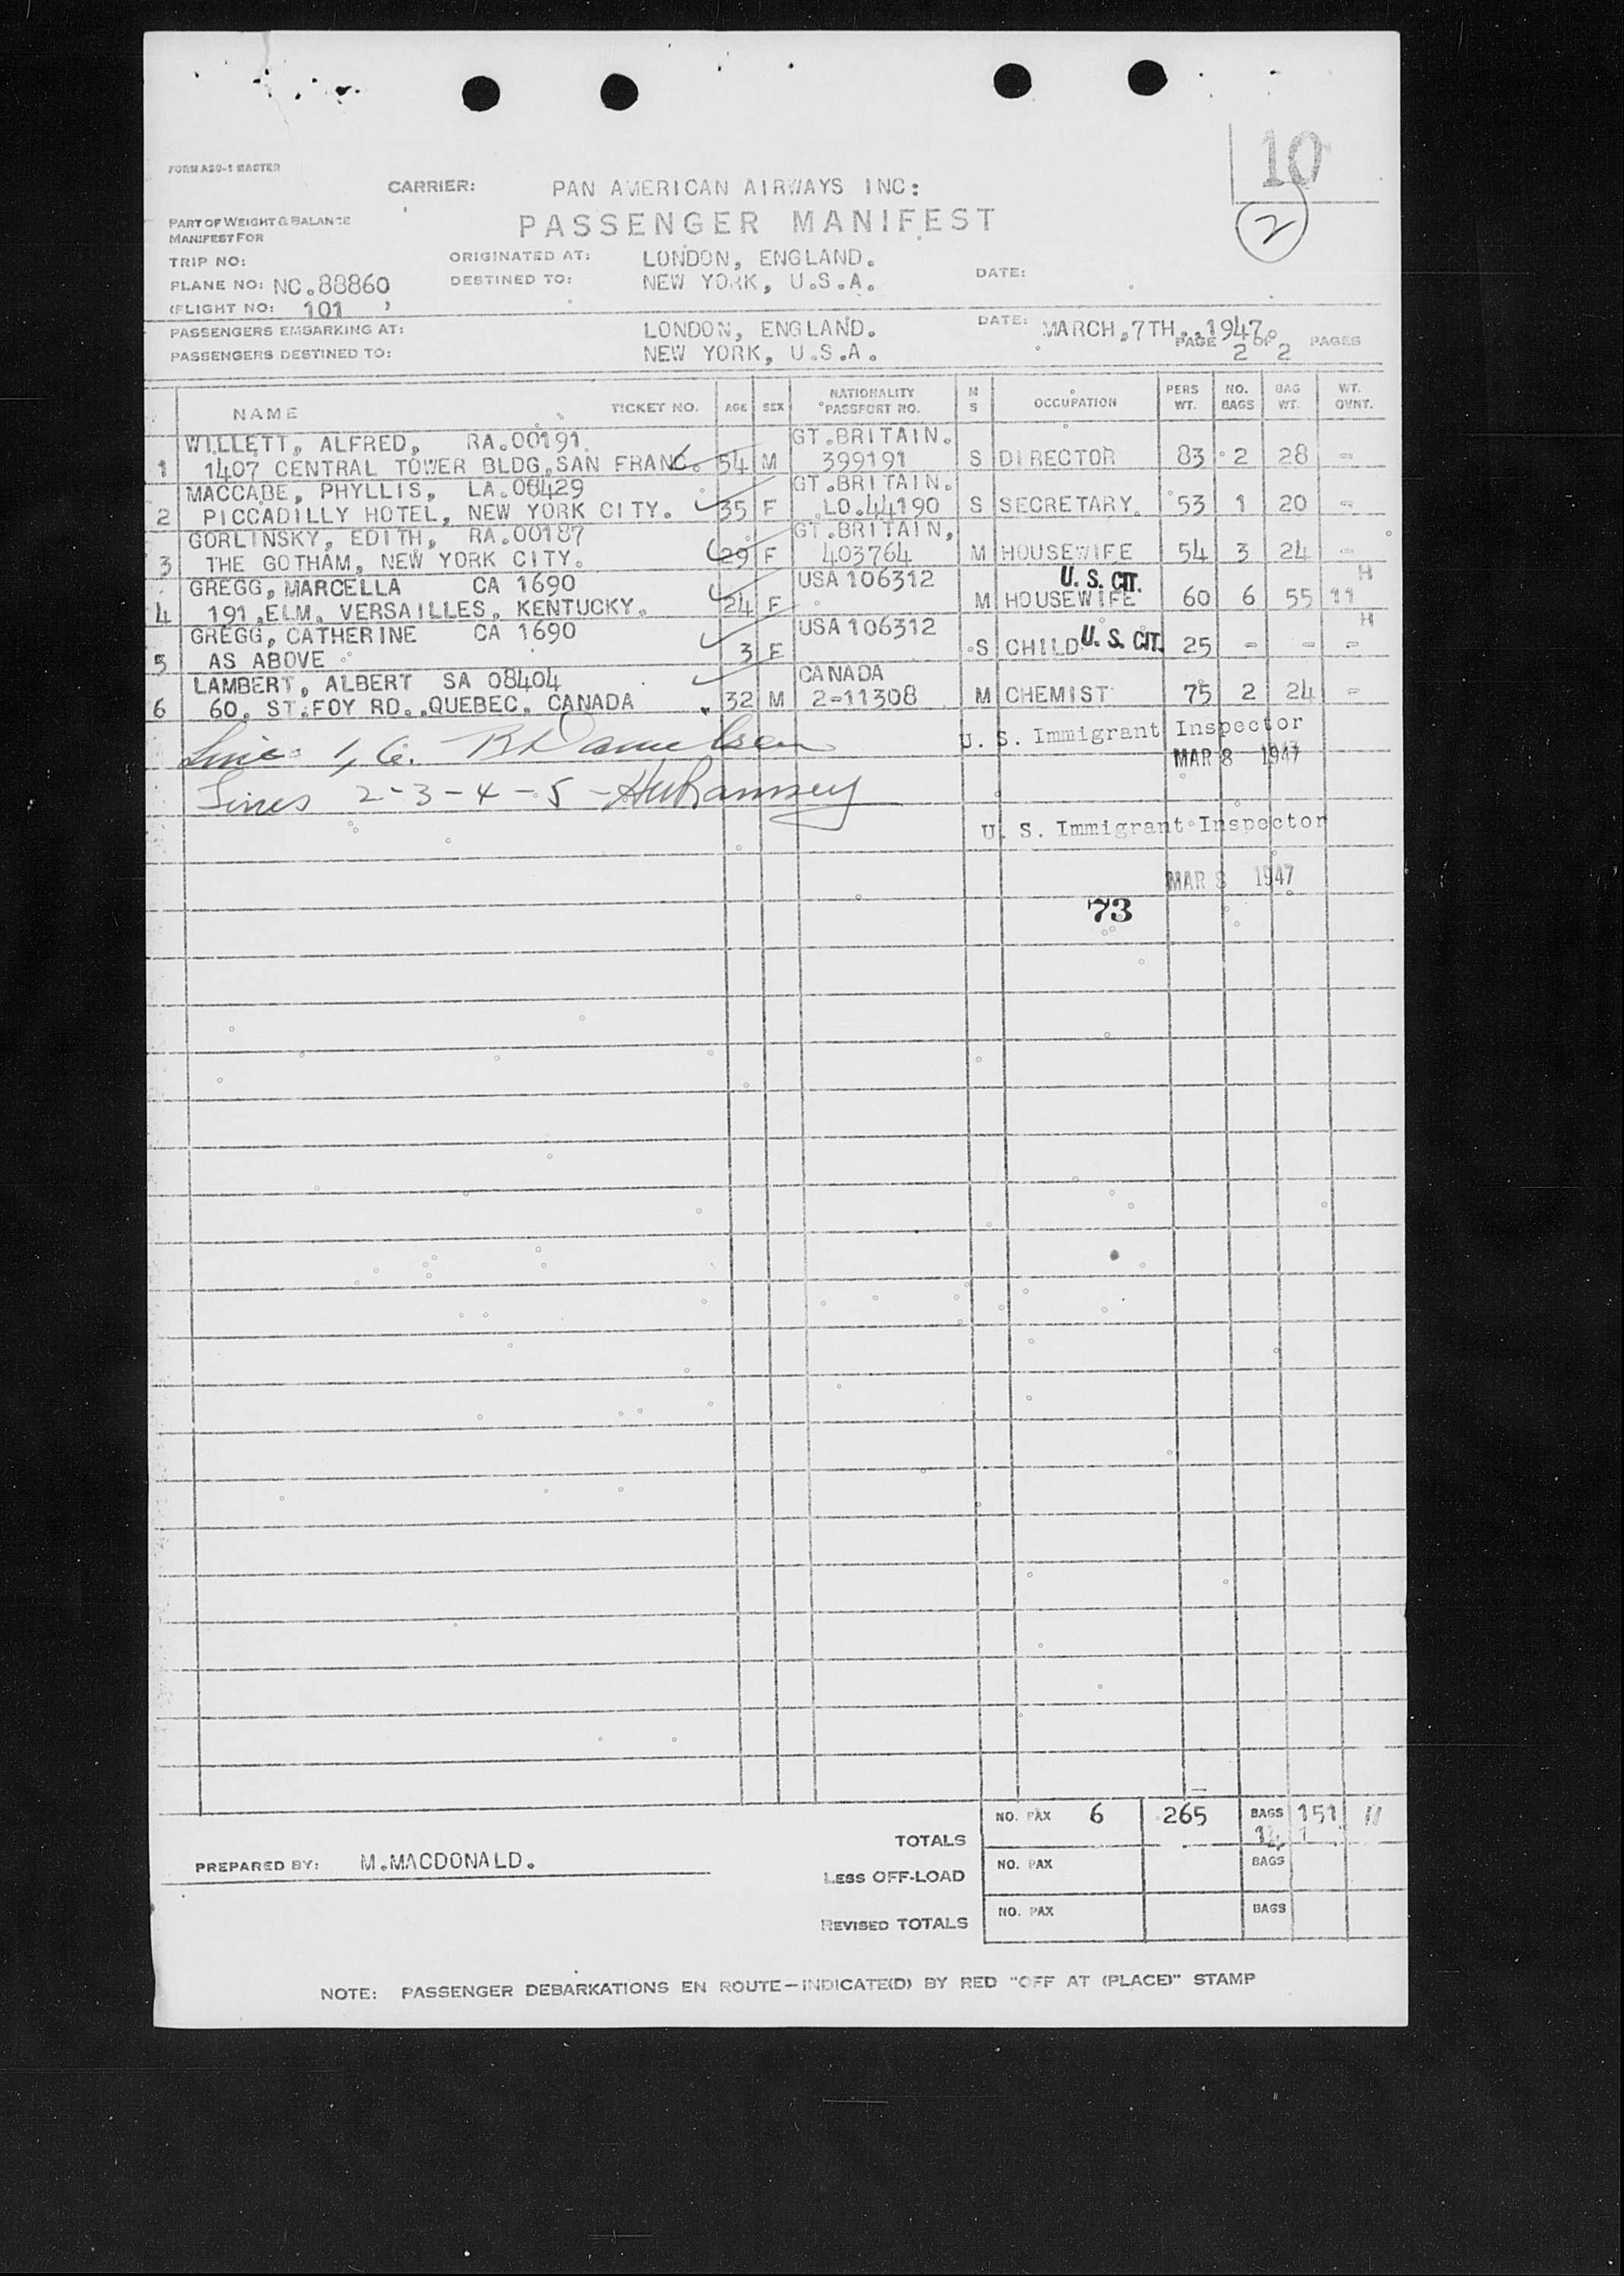 10
2
FORM ASD-1 MASTER
CARRIER: PAN AMERICAN AIRWAYS INC:
PASSENGER MANIFEST
PART OF WEIGHT & BALANCE
MANIFEST FOR
TRIP NO:
ORIGINATED AT: LONDON, ENGLAND.
PLANE NO: NC.88860
DESTINED TO: NEW YORK, U.S.A.
DATE:
(FLIGHT NO: 101 )
PASSENGERS EMBARKING AT: LONDON, ENGLAND.
DATE: MARCH,7TH.,1947.
PASSENGERS DESTINED TO: NEW YORK, U.S.A.
PAGE 2 OF 2 PAGES
NAME TICKET NO. AGE SEX NATIONALITY PASSPORT NO. M S OCCUPATION PERS WT. NO. BAGS BAG WT. WT. OVNT.
WILLETT, ALFRED, RA.00191. GT.BRITAIN.
1 1407 CENTRAL TOWER BLDG,SAN FRANC. 54 M 399191 S DIRECTOR 83 2 28 -
MACCABE, PHYLLIS, LA.08429 GT.BRITAIN.
2 PICCADILLY HOTEL, NEW YORK CITY. 35 F LO.44190 S SECRETARY. 53 1 20 -
GORLINSKY, EDITH, RA.00187 GT.BRITAIN,
3 THE GOTHAM, NEW YORK CITY. 29 F 403764 M HOUSEWIFE 54 3 24 -
GREGG, MARCELLA CA 1690 USA 106312 U. S. CIT. H
4 191,ELM, VERSAILLES, KENTUCKY. 24 F M HOUSEWIFE 60 6 55 11
GREGG, CATHERINE CA 1690 USA 106312 H
5 AS ABOVE 3 F S CHILD U. S. CIT. 25 - - -
LAMBERT, ALBERT SA 08404 CANADA
6 60, ST.FOY RD.,QUEBEC, CANADA 32 M 2-11308 M CHEMIST 75 2 24 -
Lines 1, 6. R Danielsen
U. S. Immigrant Inspector
MAR 8 1947
Lines 2-3-4-5 - HW Ramsey
U. S. Immigrant Inspector
MAR 8 1947
73
TOTALS NO. PAX 6 265 BAGS 151 11
PREPARED BY: M.MACDONALD.
LESS OFF-LOAD NO. PAX BAGS
REVISED TOTALS NO. PAX BAGS
NOTE: PASSENGER DEBARKATIONS EN ROUTE—INDICATE(D) BY RED "OFF AT (PLACE)" STAMP